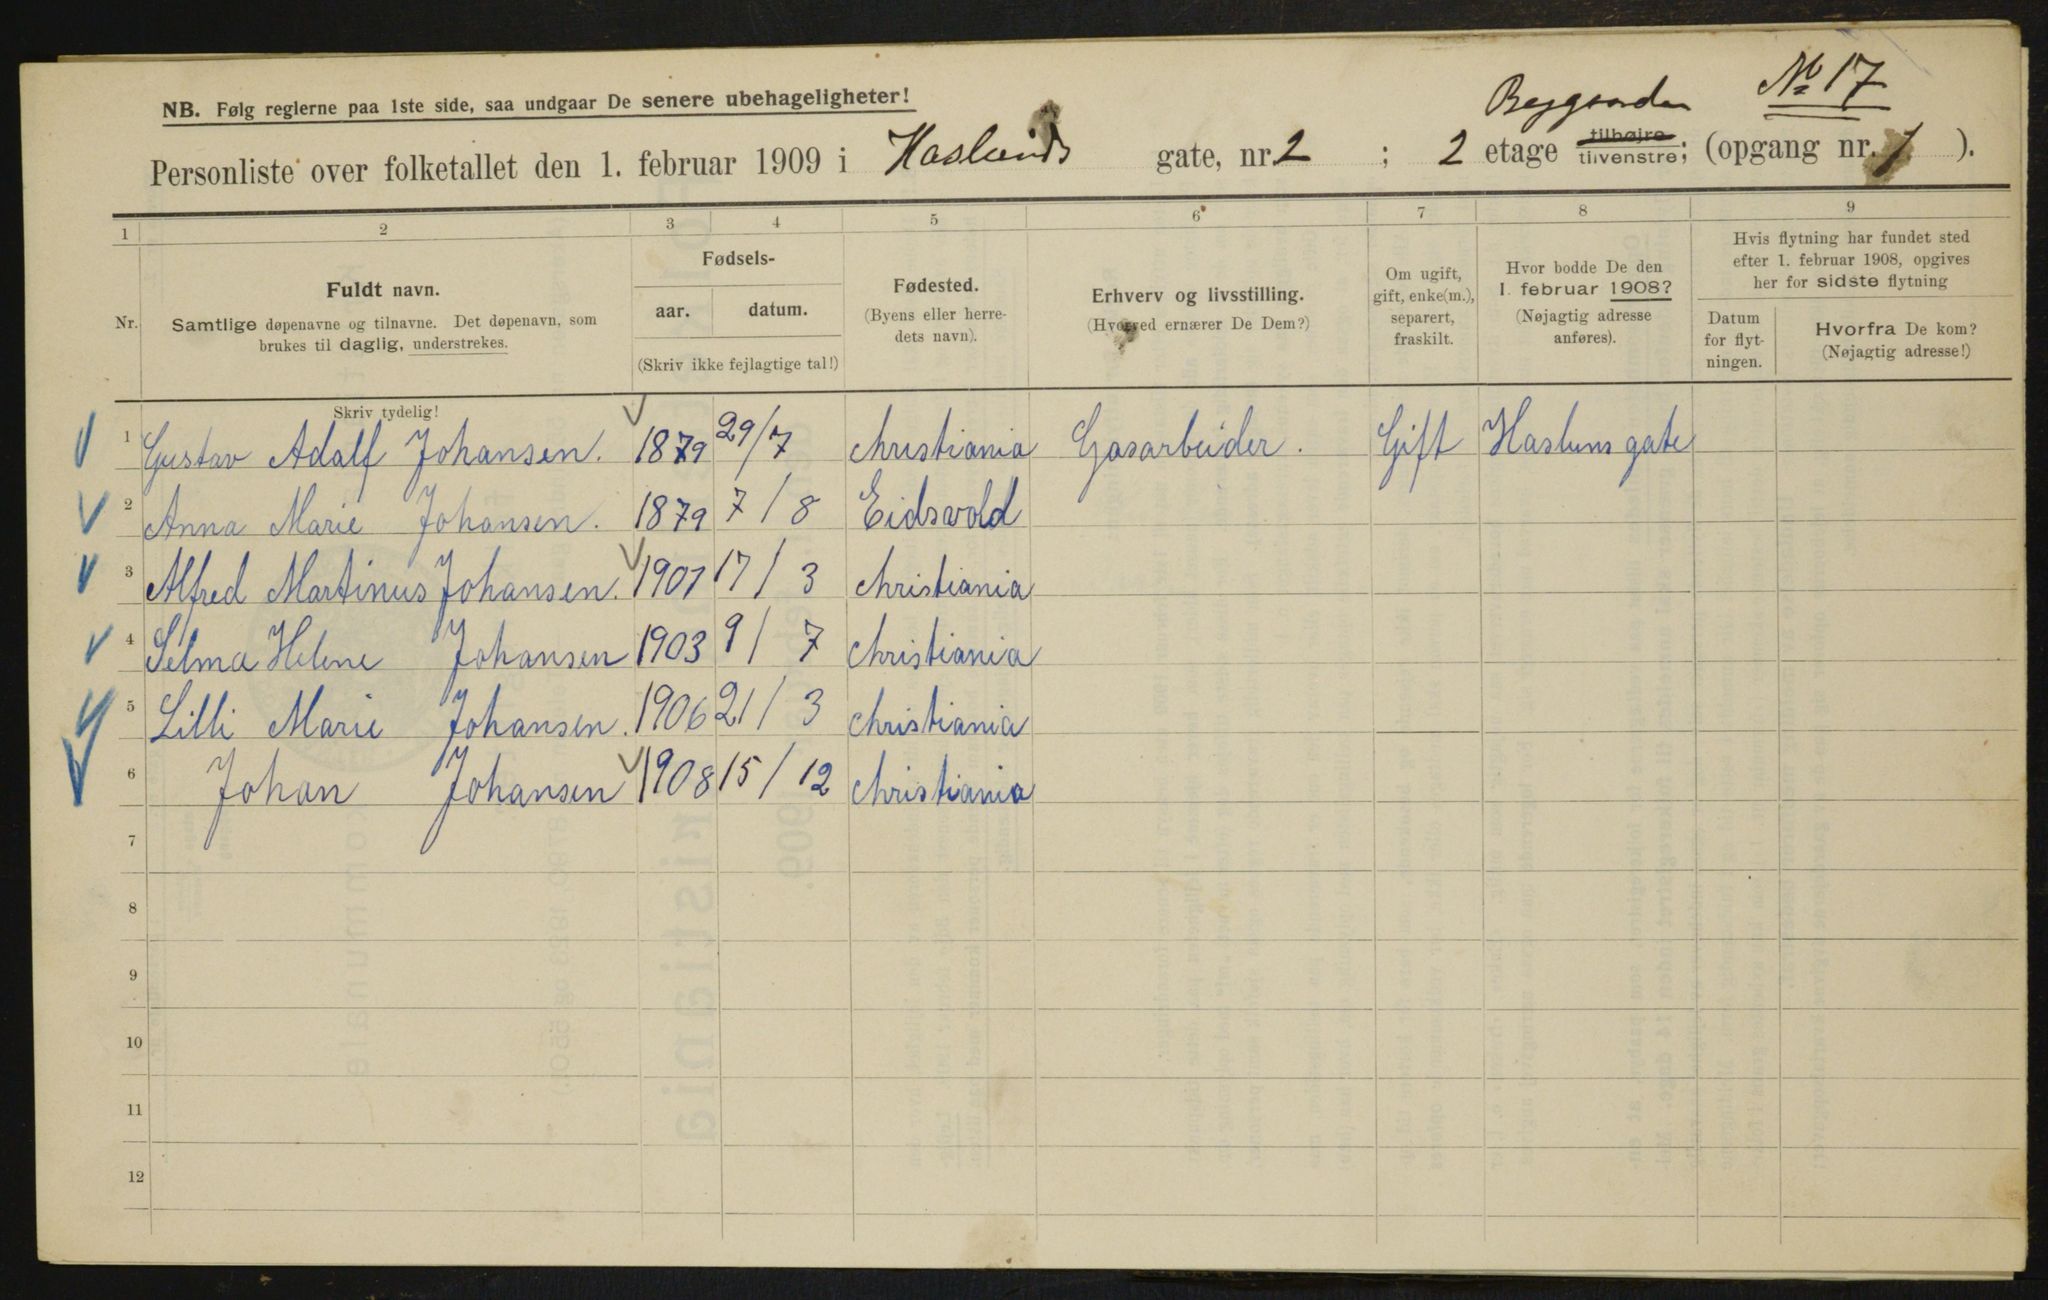 № 17
Baggaarden
NB. Følg reglerne paa 1ste side, saa undgaar De senere ubehageligheter!
Personliste over folketallet den 1. februar 1909 i Haslunds gate, nr. 2 ; 2 etage tilhøjre tilvenstre; (opgang nr. 1 ).
1 2 3 4 5 6 7 8 9
Nr.
Fuldt navn.
Samtlige døpenavne og tilnavne. Det døpenavn, som
brukes til daglig, understrekes.
Fødsels-
aar. datum.
(Skriv ikke fejlagtige tal!)
Fødested.
(Byens eller herre-
dets navn).
Erhverv og livsstilling.
(Hvorved ernærer De Dem?)
Om ugift,
gift, enke(m.),
separert,
fraskilt.
Hvor bodde De den
1. februar 1908?
(Nøjagtig adresse
anføres).
Hvis flytning har fundet sted
efter 1. februar 1908, opgives
her for sidste flytning
Datum
for flyt-
ningen.
Hvorfra De kom?
(Nøjagtig adresse!)
Skriv tydelig!
1 Gustav Adalf Johansen. 1879 29/7 Christiania Gasarbeider. Gift Hasluns gate
2 Anna Marie Johansen. 1879 7/8 Eidsvold
3 Alfred Martinus Johansen. 1901 17/3 Christiania
4 Selma Helene Johansen 1903 9/7 Christiania
5 Lilli Marie Johansen. 1906 21/3 Christiania
6 Johan Johansen 1908 15/12 Christiania
7
8
9
10
11
12